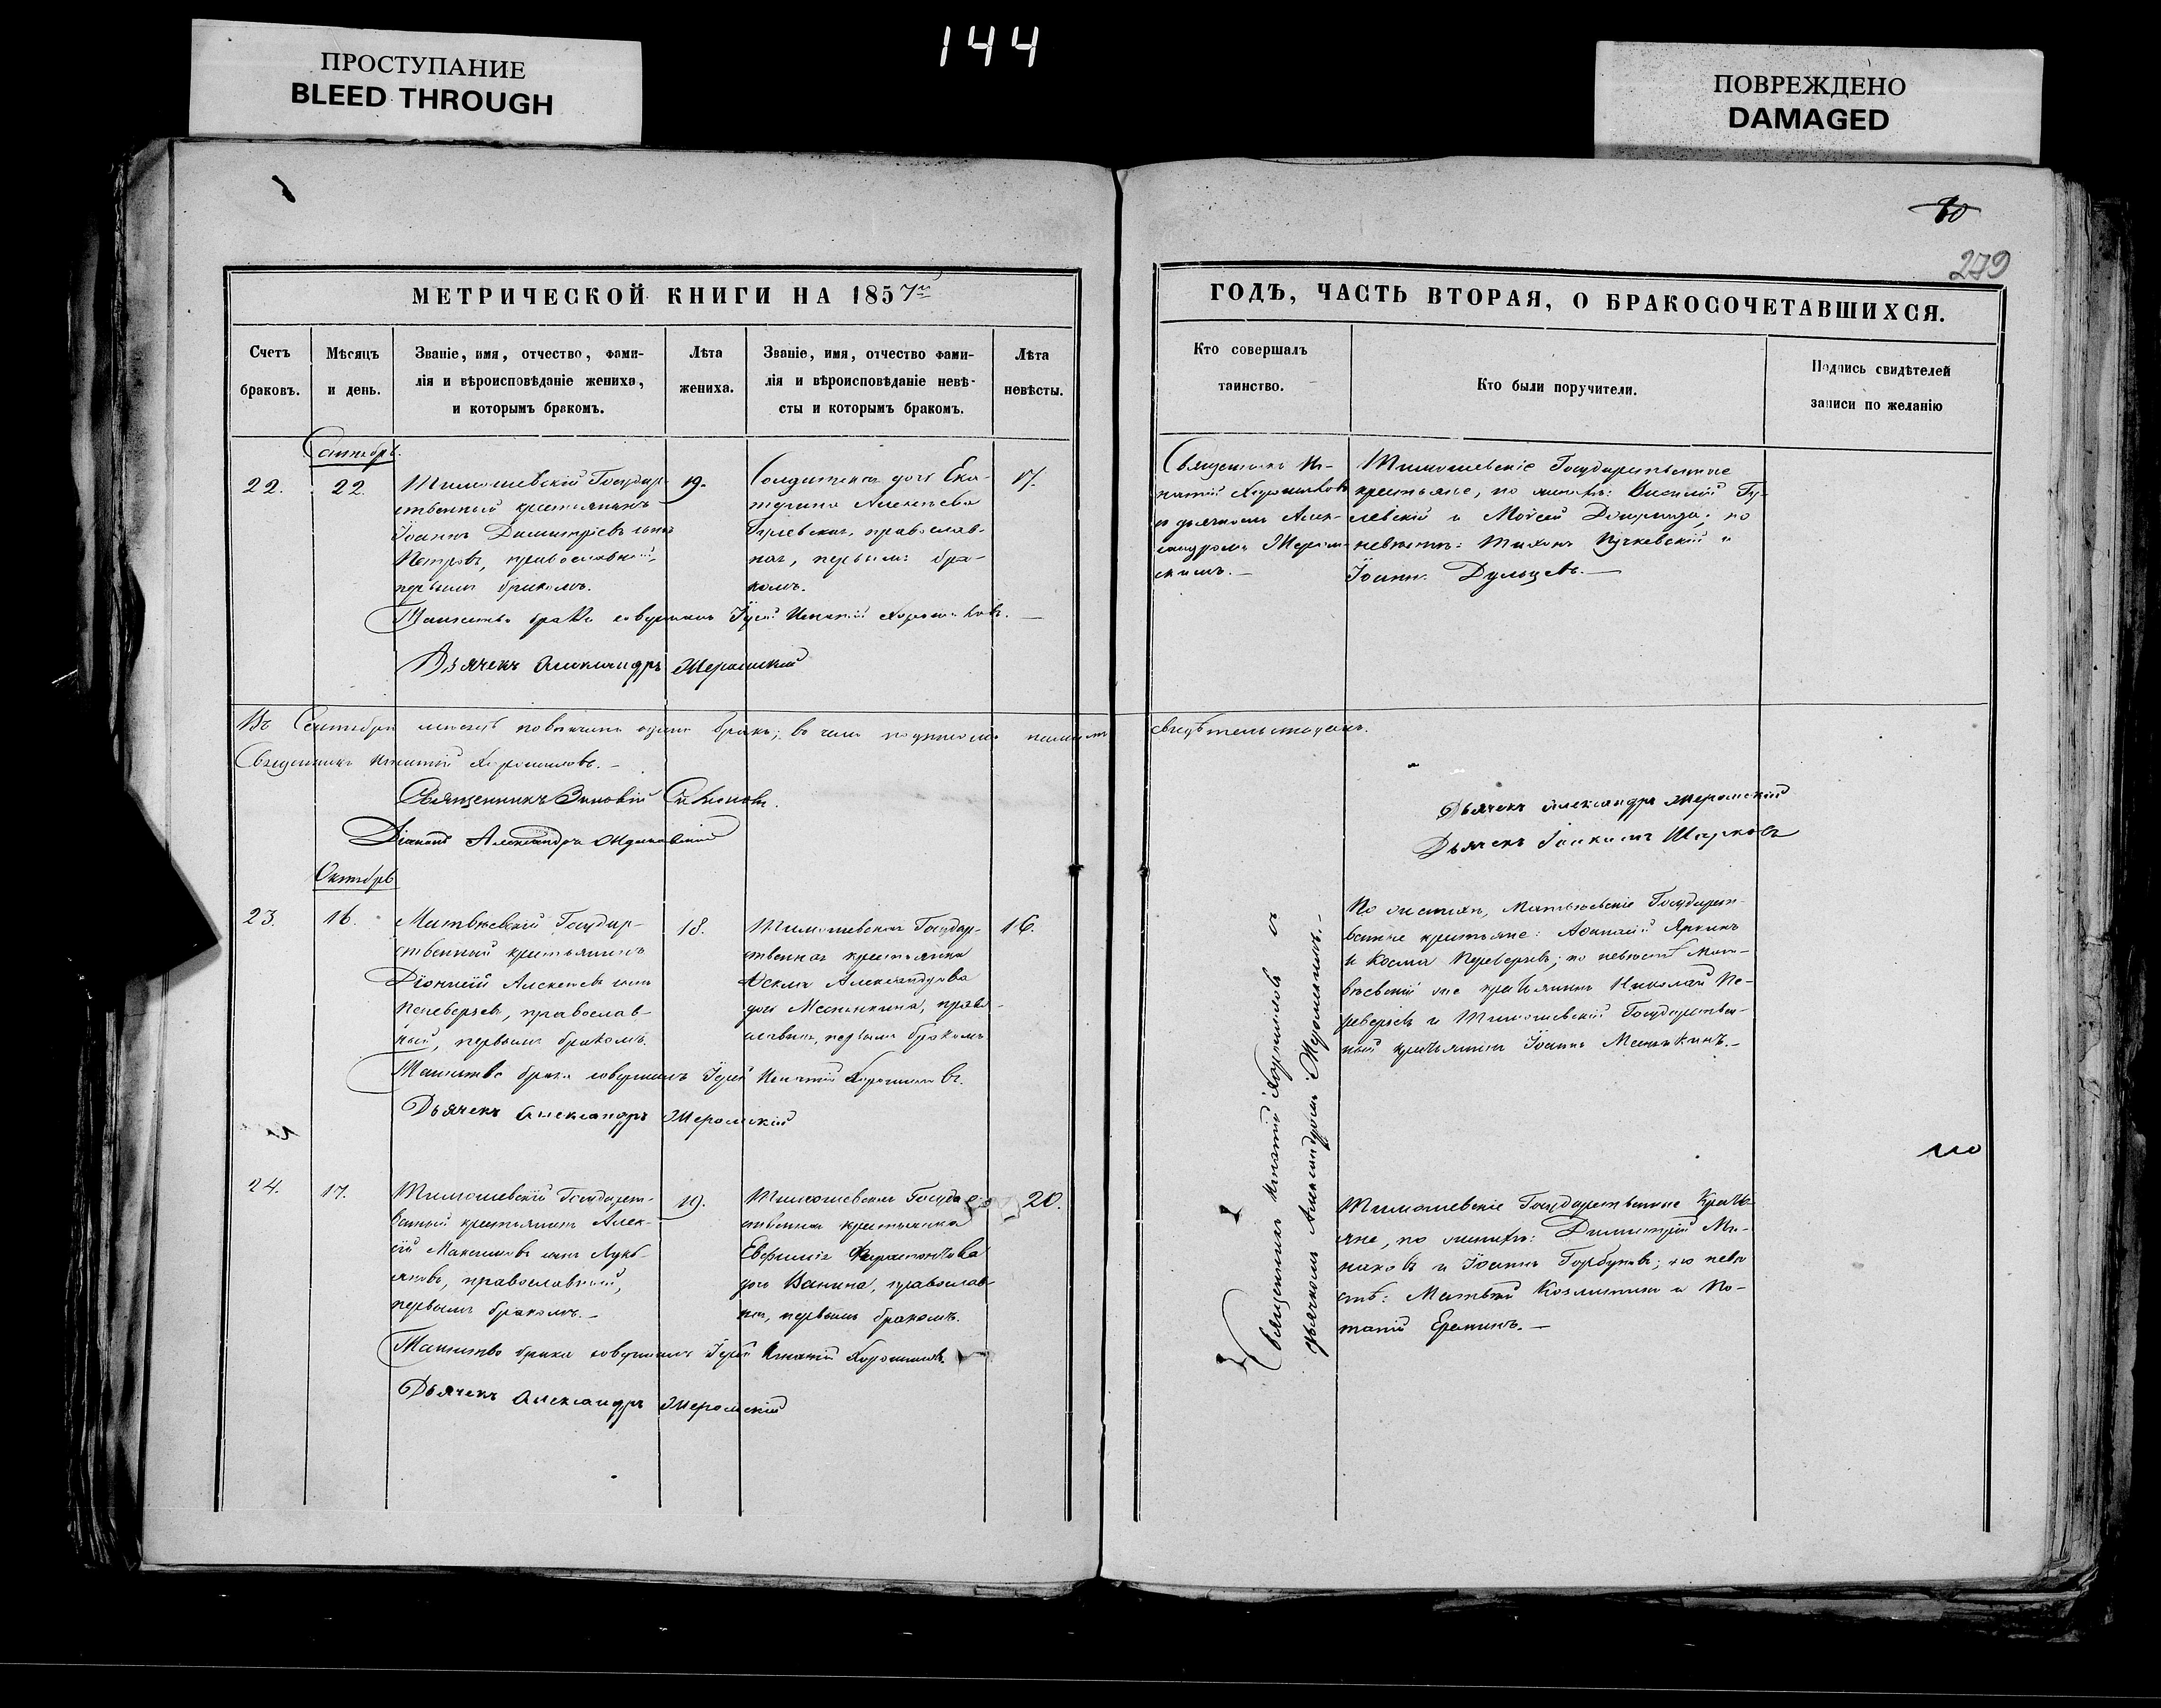 ПРОСТУПАНИЕ
BLEED THROUGH
144
ПОВРЕЖДЕНО
DAMAGED
80
279
МЕТРИЧЕСКОЙ КНИГИ НА 1857й
Счетъ браковъ.
Мѣсяцъ и день.
Званіе, имя, отчество, фами-
лія и вѣроисповѣданіе жениха,
и которымъ бракомъ.
Лѣта жениха.
Званіе, имя, отчество фами-
лія и вѣроисповѣданіе невѣ-
сты и которымъ бракомъ.
Лѣта невѣсты.
Сентябрь.
22.
22.
Тимошевскій Государ-
ственный крестьянинъ
Іоаннъ Димитріевъ сынъ
Петровъ, православный,
первымъ бракомъ.
19.
Солдатская дочь Ека-
терина Алексѣева
православ-
ная, первымъ бра-
комъ.
17.
Таинство брака совершилъ Іерей Игнатій Хорошиловъ.
Дьячекъ Александръ Жеромскій
Въ Сентябрѣ мѣсяцѣ повѣнчанъ одинъ бракъ; въ чемъ подписомъ нашимъ
Священникъ Игнатій Хорошиловъ.
Священникъ Зиновій
Діаконъ Александръ
Октябрь
23.
16.
Матвѣевскій Государ-
ственный крестьянинъ
Діонисій Алексѣевъ сынъ
Переверзевъ, православ-
ный, первымъ бракомъ.
18.
Тимошевская Государ-
ственная крестьянка
Александрова
дочь Меснянкина, право-
славная, первымъ бракомъ
16.
Таинство брака совершилъ Іерей Игнатій Хорошиловъ.
Дьячекъ Александръ Жеромскій
24.
17.
Тимошевскій Государст-
венный крестьянинъ Алек-
сій Максимовъ сынъ Лукь-
яновъ, православный,
первымъ бракомъ.
19.
Тимошевская Государ-
ственная крестьянка
Евфимія Ферапонтова
дочь Ванина, православ-
ная, первымъ бракомъ.
20.
Таинство брака совершилъ Іерей Игнатій Хорошиловъ.
Дьячекъ Александръ Жеромскій
ГОДЪ, ЧАСТЬ ВТОРАЯ, О БРАКОСОЧЕТАВШИХСЯ.
Кто совершалъ
таинство.
Кто были поручители.
Подпись свидѣтелей
записи по желанію
Священникъ Иг-
натій Хорошиловъ
съ дьячкомъ Алек-
сандромъ Жером-
скимъ.
Тимошевскіе Государственные
крестьяне, по женихѣ: Василій
и Моѵсей по
невѣстѣ: Тихонъ и
Іоаннъ Дульцевъ.
свидѣтельствуемъ.
Дьячекъ Александръ Жеромскій
Дьячекъ Іоакимъ Шарковъ
Священникъ Игнатій Хорошиловъ съ
дьячкомъ Александромъ Жеромскимъ.
По женихѣ, Матвѣевскіе Государст-
венные крестьяне: Аѳанасій Яркинъ
и Косма Переверзевъ; по невѣстѣ Мат-
вѣевскій же крестьянинъ Николай Пе-
реверзевъ и Тимошевскій Государствен-
ный крестьянинъ Іоаннъ
Тимошевскіе Государственные Кресть-
яне, по женихѣ: Димитрій Мо-
наковъ и Іоаннъ Горбуновъ; по невѣ-
стѣ: Матвѣй Козлитинъ и По-
тапій Ереминъ.